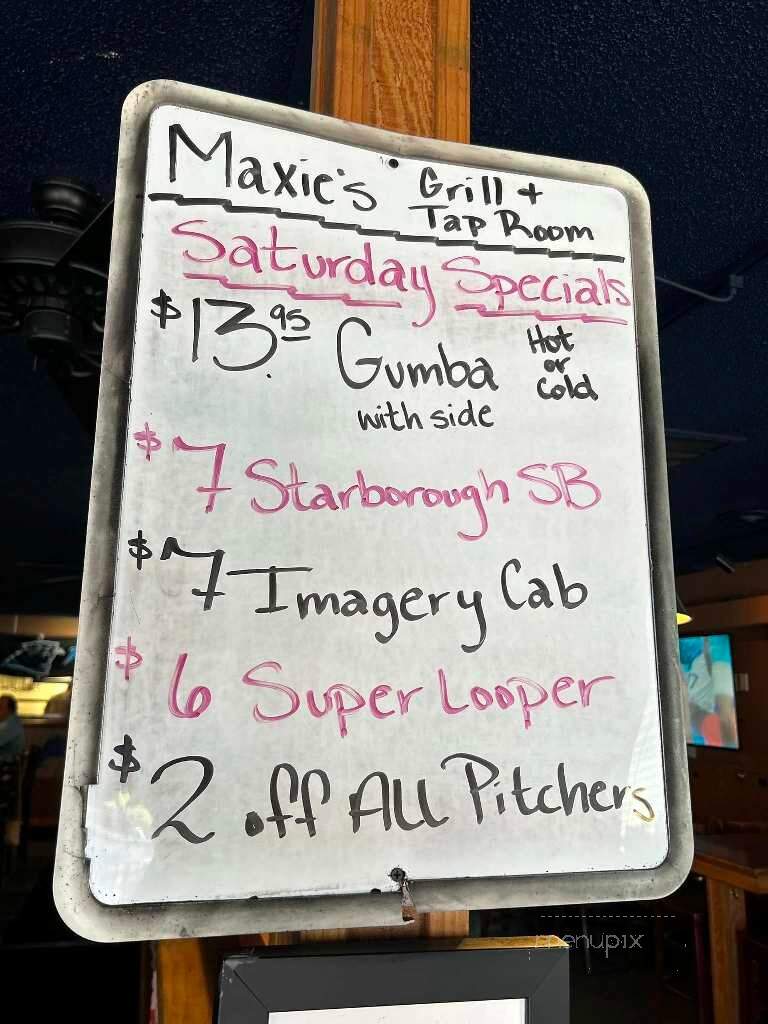 Maxie's Grill +
Tap Room
Saturday Specials
$13.95 Gumba Hot
or
Cold
with side
$7 Starborough SB
$7 Imagery Cab
$6 Super Looper
$2 off ALL Pitchers
menupix